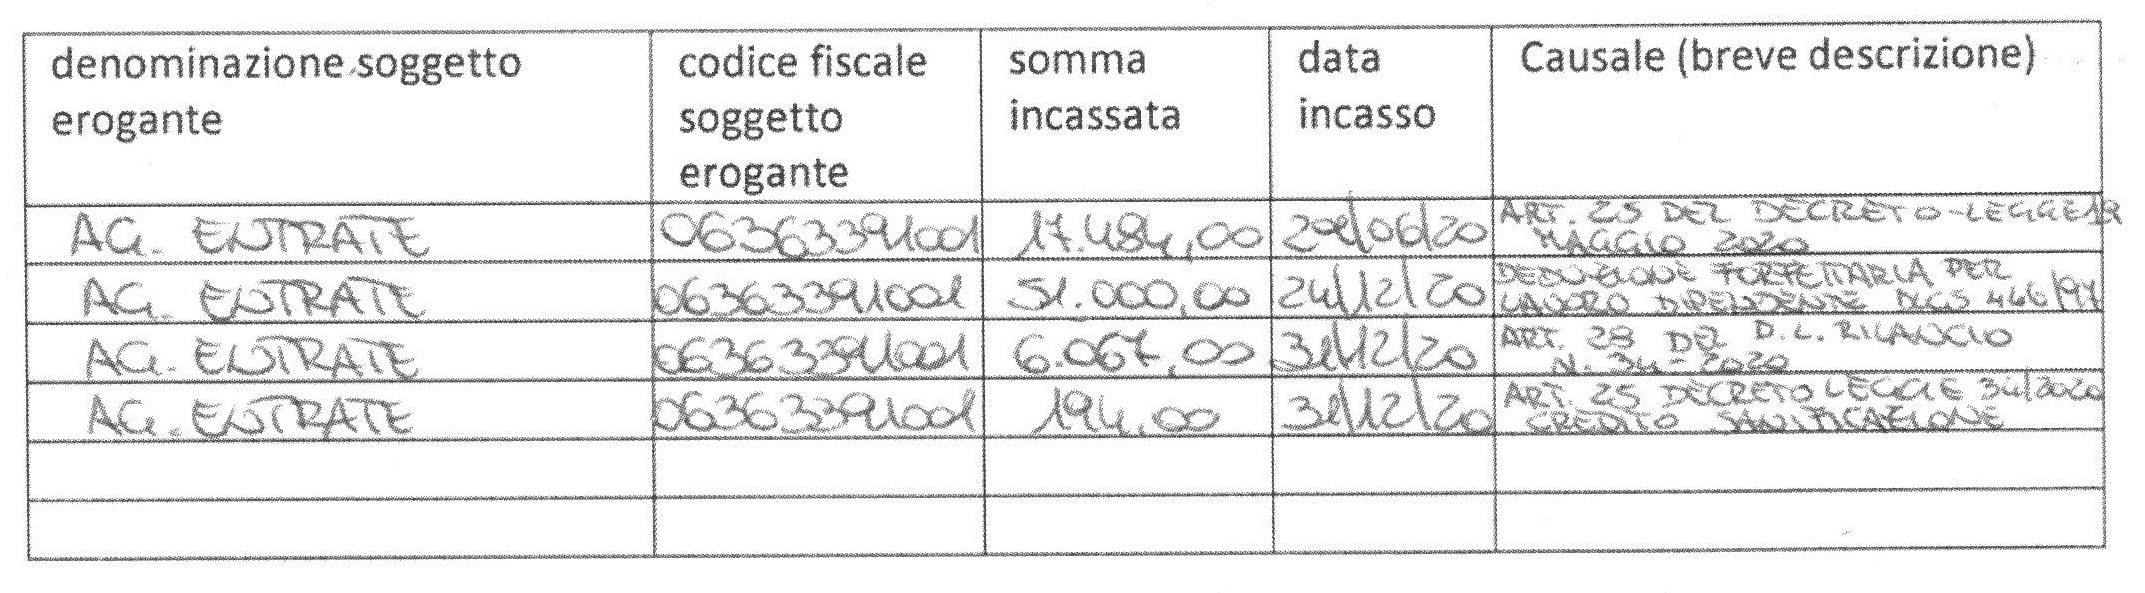 denominazione soggetto erogante | codice fiscale soggetto erogante | somma incassata | data incasso | Causale (breve descrizione)
AG. ENTRATE | 06363391001 | 17.484,00 | /06/20 | ART. 25 DEL DECRETO-LEGGE 19 MAGGIO 2020
AG. ENTRATE | 06363391001 | 51.000,00 | 24/12/20 | DEDUZIONE FORFETTARIA PER LAVORO DIPENDENTE DLGS 446/97
AG. ENTRATE | 06363391001 | 6.067,00 | 31/12/20 | ART. 28 DEL D.L. RILANCIO N. 34-2020
AG. ENTRATE | 06363391001 | 194,00 | 31/12/20 | ART. 25 DECRETO LEGGE 34/2020 CREDITO SANIFICAZIONE